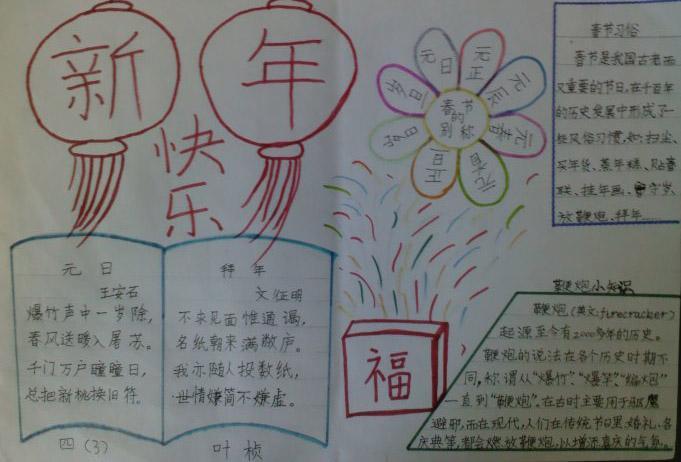 新年
快乐
元日
王安石
爆竹声中一岁除,
春风送暖入屠苏。
千门万户曈曈日,
总把新桃换旧符。
四(3)
拜年
文征明
不求见面惟通谒,
名纸朝来满敝庐。
我亦随人投数纸,
世情嫌简不嫌虚。
叶桢
春节
的
别称
元日
元正
元辰
元春
元朔
正旦
福
春节习俗
春节是我国古老而
又重要的节日,在千百年
的历史发展中形成了一
些风俗习惯,如:扫尘、
买年货、蒸年糕、贴春
联、挂年画、守岁、
放鞭炮、拜年……
鞭炮小知识
鞭炮(英文:firecracker)
起源至今有2000多年的历史。
鞭炮的说法在各个历史时期不
同,称谓从“爆竹”、“爆竿”、“编炮”
一直到“鞭炮”。在古时主要用于驱魔
避邪,而在现代,人们在传统节日、婚礼、各
庆典等,都会燃放鞭炮,以增添喜庆的气氛。